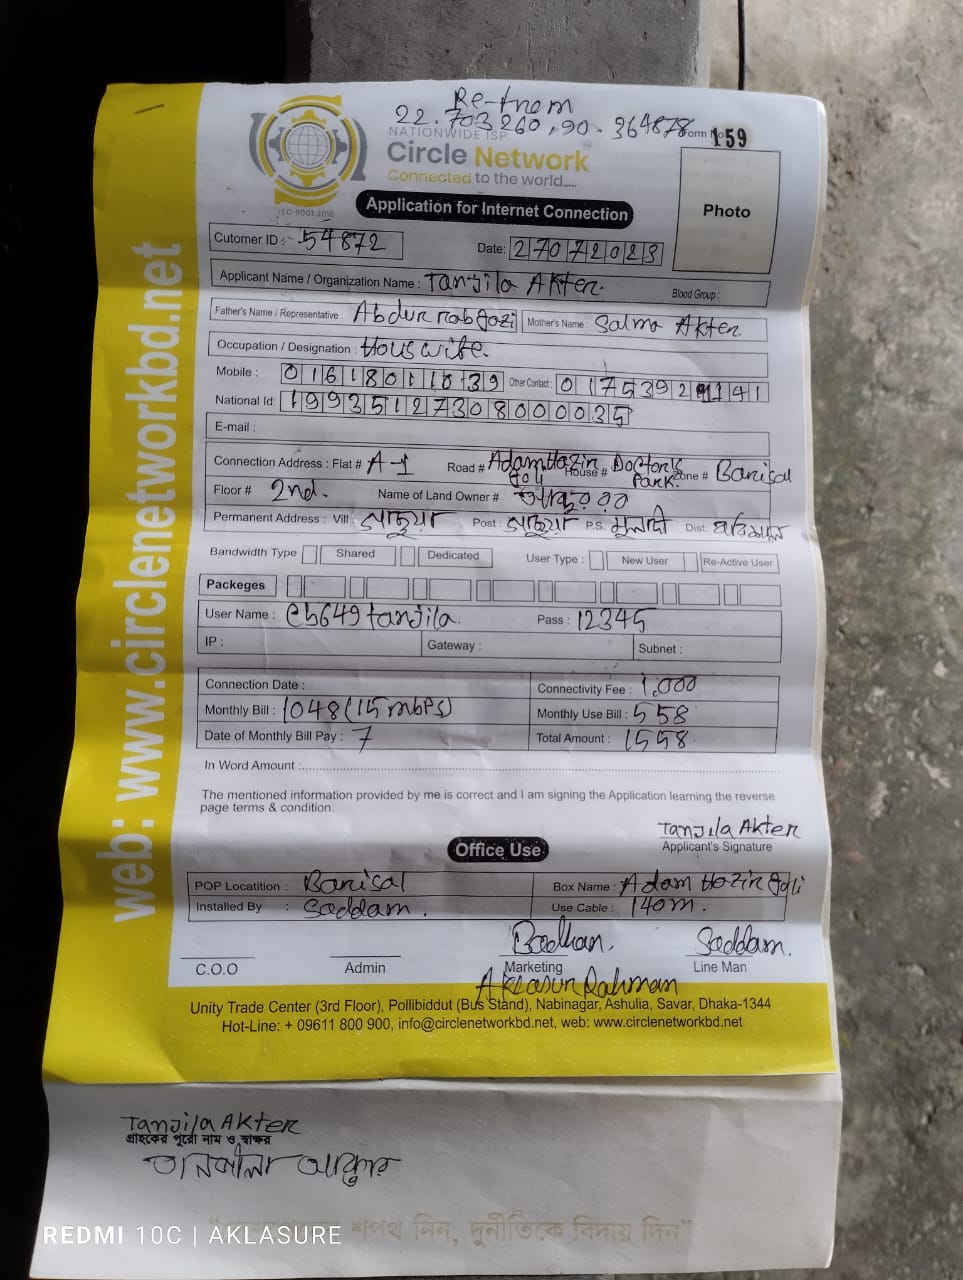 Re-tnem
22.703260,90.364878
Form No 159
NATIONWIDE ISP
Circle Network
Connected to the world.....
ISO 9001:2015
Application for Internet Connection
Photo
Cutomer ID :- 54872 Date: 27072023
Applicant Name / Organization Name : Tanjila Akter. Blood Group :
Father's Name / Representative : Abdur rab Gazi Mother's Name : Salma Akter
Occupation / Designation : Houswife.
Mobile : Other Contact:
National Id: 19935127308000035
E-mail :
Connection Address : Flat # A-1 Road # Adam Hazir Goli House # Doctor's Park. Zone # Barisal
Floor # 2nd. Name of Land Owner #
Permanent Address : Vill : Post : P.S. Dist:
Bandwidth Type Shared Dedicated User Type : New User Re-Active User
Packeges
User Name : cb649tanjila. Pass : 12345
IP : Gateway : Subnet :
Connection Date : Connectivity Fee : 1,000
Monthly Bill : 1048 (15mbps) Monthly Use Bill : 558
Date of Monthly Bill Pay : 7 Total Amount : 1558
In Word Amount :
The mentioned information provided by me is correct and I am signing the Application learning the reverse
page terms & condition.
Tanjila Akter
Applicant's Signature
Office Use
POP Locatition : Barisal Box Name : Adam Hozir Goli
Installed By : Saddam. Use Cable : 140m.
Badhan. Saddam.
C.O.O Admin Marketing Line Man
Aklasur Rahman
Unity Trade Center (3rd Floor), Pollibiddut (Bus Stand), Nabinagar, Ashulia, Savar, Dhaka-1344
Hot-Line: + 09611 800 900, info@circlenetworkbd.net, web: www.circlenetworkbd.net
web: www.circlenetworkbd.net
Tanjila Akter
গ্রাহকের পুরো নাম ও স্বাক্ষর
তানজীলা আক্তার
শপথ নিন, দুর্নীতিকে বিদায় দিন"
REDMI 10C | AKLASURE